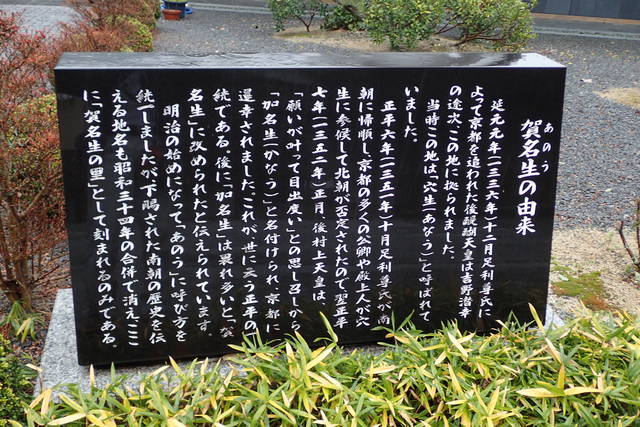 あのう
賀名生の由来
延元元年(一三三六年)十二月足利尊氏に
よって京都を追われた後醍醐天皇は吉野潜幸
の途次、この地に拠られました。
当時この地は、穴生(あなう)と呼ばれて
いました。
正平六年(一三五一年)十月足利尊氏が南
朝に帰順し、京都の多くの公卿や殿上人が穴
生に参候して北朝が否定されたので、翌正平
七年(一三五二年)正月、後村上天皇は、
「願いが叶って目出度い」との思し召しから
「加名生(かなう)」と名付けられ、京都に
還幸されました。これが世に云う正平の
統である。後に「加名生」は畏れ多いと、「賀
名生」に改められたと伝えられています。
明治の始めになって「あのう」に呼び方を
統一しましたが下賜された南朝の歴史を伝
える地名も昭和三十四年の合併で消え、ここ
に「賀名生の里」として刻まれるのみである。